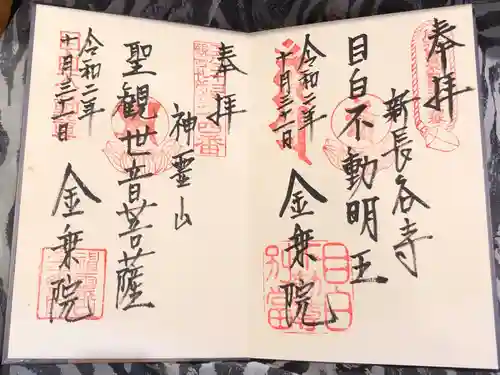 奉拝
新長谷寺
目白不動明王
令和二年
十月三十一日
金乗院
目白
別當
奉拝
神靈山
聖観世音菩薩
令和二年
十月三十一日
金乗院